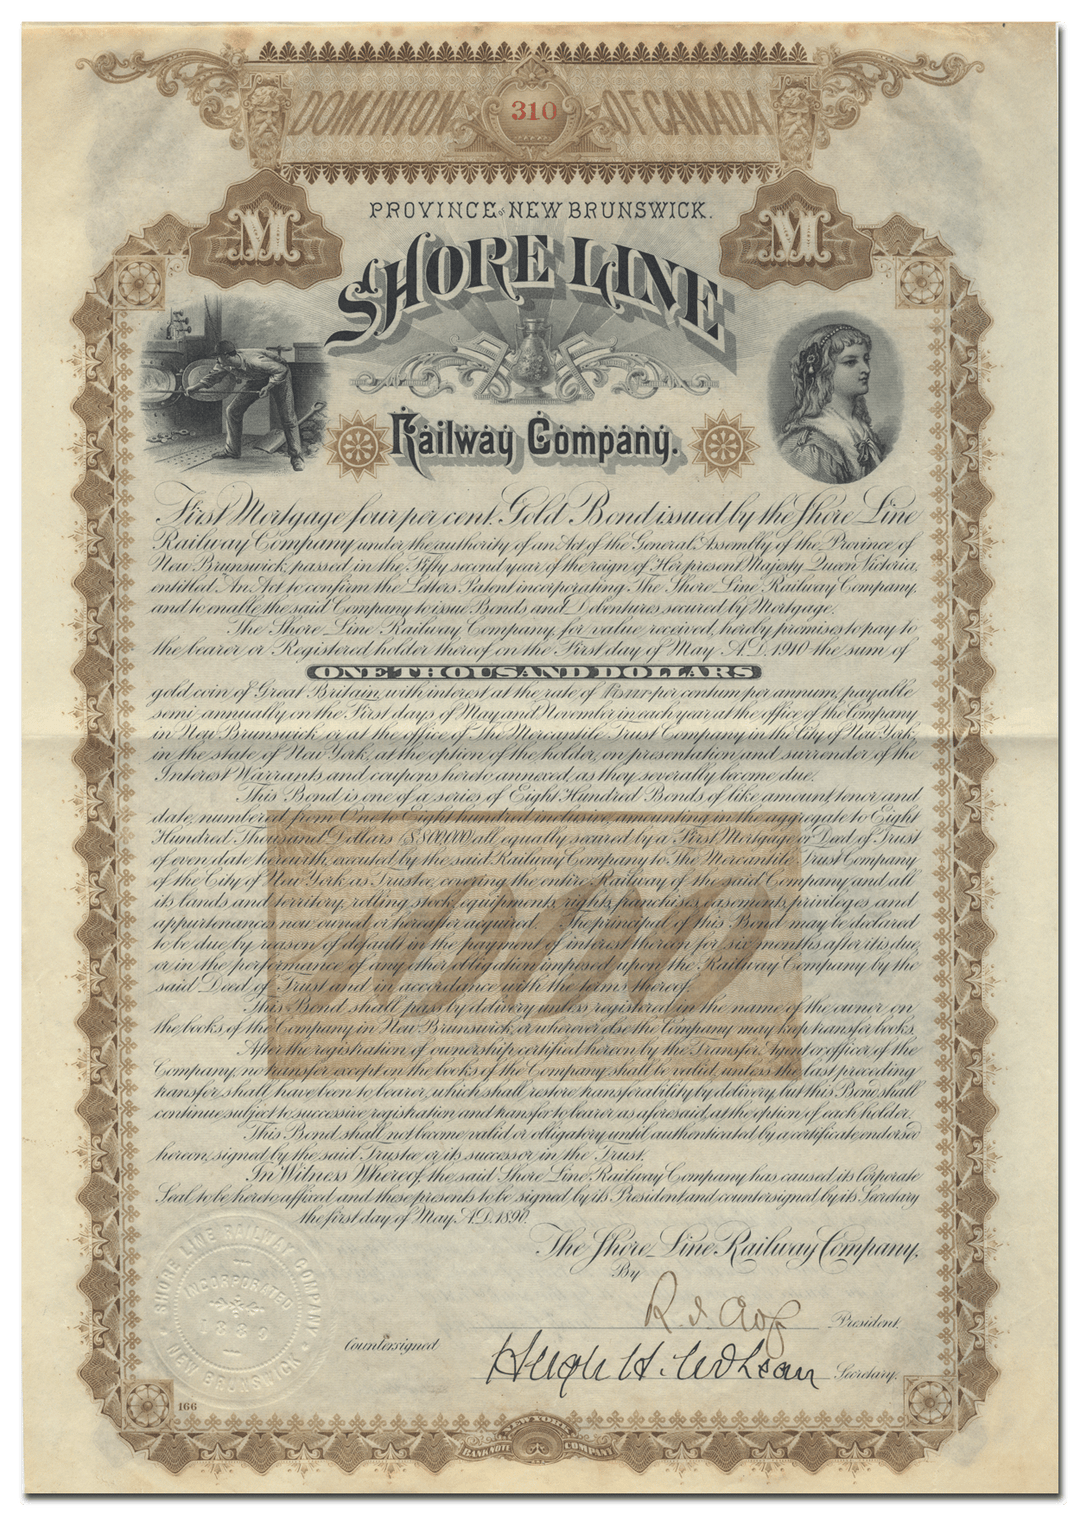 DOMINION 310 OF CANADA
M M
PROVINCE of NEW BRUNSWICK.
SHORE LINE
Railway Company.
First Mortgage four per cent. Gold Bond issued by the Shore Line
Railway Company under the authority of an Act of the General Assembly of the Province of
New Brunswick, passed in the Fifty second year of the reign of Her present Majesty Queen Victoria,
entitled An Act to confirm the Letters Patent incorporating The Shore Line Railway Company,
and to enable the said Company to issue Bonds and Debentures secured by Mortgage.
The Shore Line Railway Company, for value received, hereby promises to pay to
the bearer or Registered holder thereof on the First day of May A.D. 1940 the sum of
ONE THOUSAND DOLLARS
gold coin of Great Britain, with interest at the rate of four per centum per annum, payable
semi annually on the First days of May and November in each year at the office of the Company
in New Brunswick or at the office of The Mercantile Trust Company in the City of New York,
in the state of New York, at the option of the holder, on presentation and surrender of the
Interest Warrants and coupons hereto annexed, as they severally become due.
This Bond is one of a series of Eight Hundred Bonds of like amount, tenor and
date, numbered from One to Eight hundred inclusive, amounting in the aggregate to Eight
Hundred Thousand Dollars ($800,000) all equally secured by a First Mortgage or Deed of Trust
of even date herewith, executed by the said Railway Company to The Mercantile Trust Company
of the City of New York as Trustee, covering the entire Railway of the said Company and all
its lands and territory, rolling stock, equipments, rights, franchises, easements, privileges and
appurtenances now owned or hereafter acquired. The principal of this Bond may be declared
to be due by reason of default in the payment of interest thereon for six months after it is due,
or in the performance of any other obligation imposed upon the Railway Company by the
said Deed of Trust and in accordance with the terms thereof.
This Bond shall pass by delivery unless registered in the name of the owner on
the books of the Company in New Brunswick, or wherever else the Company may keep transfer books.
After the registration of ownership certified hereon by the Transfer Agent or officer of the
Company, no transfer except on the books of the Company shall be valid, unless the last preceding
transfer shall have been to bearer, which shall restore transferability by delivery, but this Bond shall
continue subject to successive registration and transfer to bearer as aforesaid, at the option of each holder.
This Bond shall not become valid or obligatory until authenticated by a certificate endorsed
hereon, signed by the said Trustee or its successor in the Trust.
In Witness Whereof, the said Shore Line Railway Company has caused its Corporate
Seal to be hereto affixed and these presents to be signed by its President and countersigned by its Secretary
the first day of May A.D. 1890.
The Shore Line Railway Company,
By
President.
Countersigned
Hugh H. McLean Secretary.
SHORE LINE RAILWAY COMPANY
INCORPORATED
1889
NEW BRUNSWICK
166
NEW YORK
BANK NOTE COMPANY